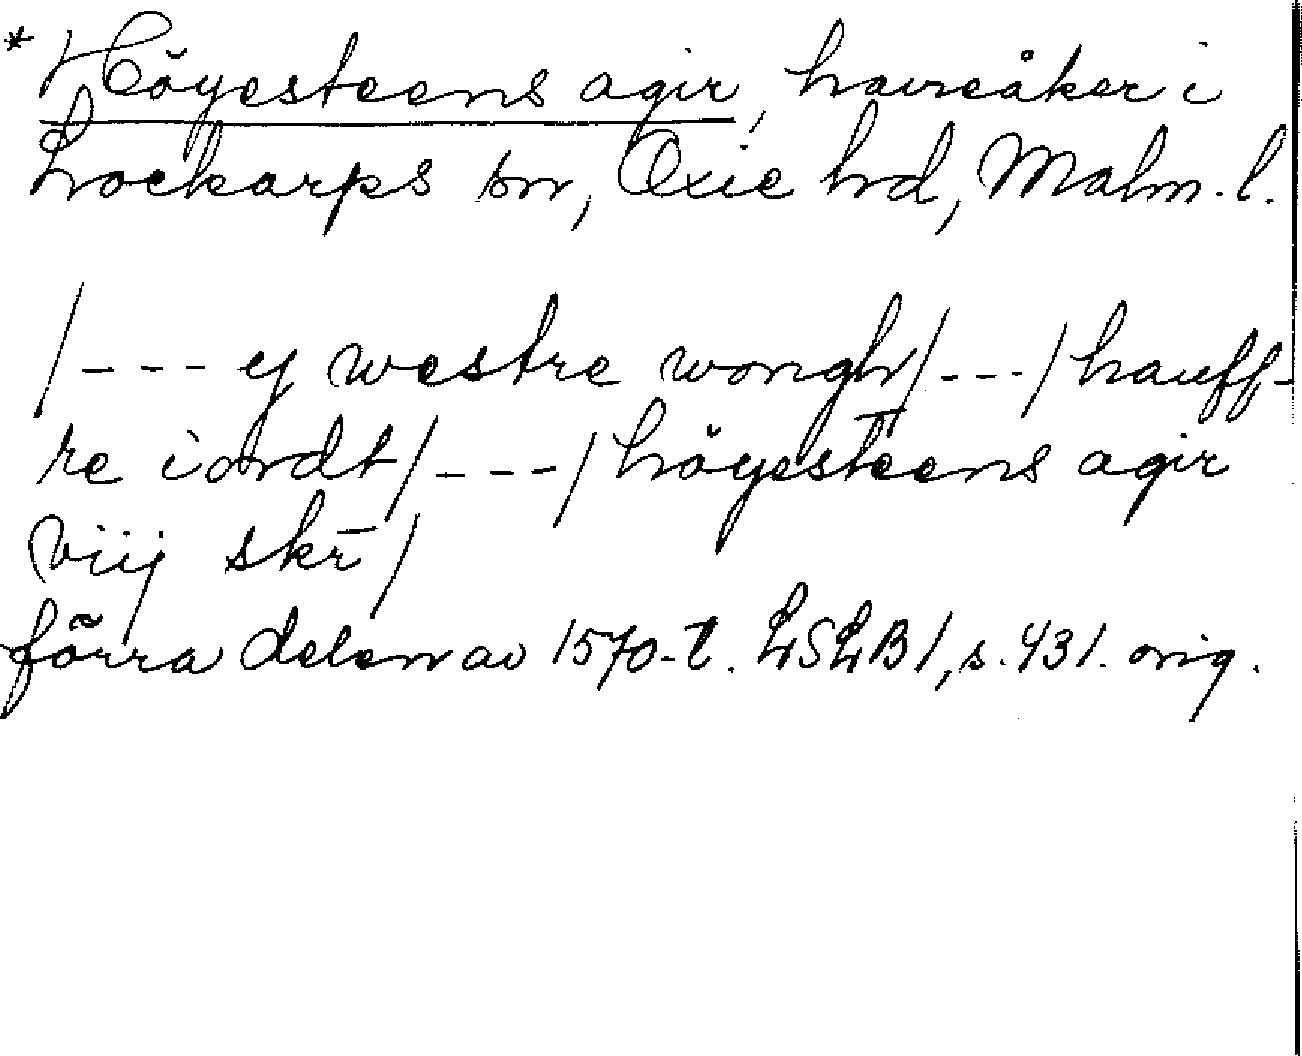 * Höyesteens agir, havreåker i
Lockarps sn, Oxie hd, Malm. l.
/--- ej westre wongh/---/hauff-
re iordt/---/höyesteens agir
viij skr̄/
förra delen av 1570-t. LSLB1, s. 431. orig.